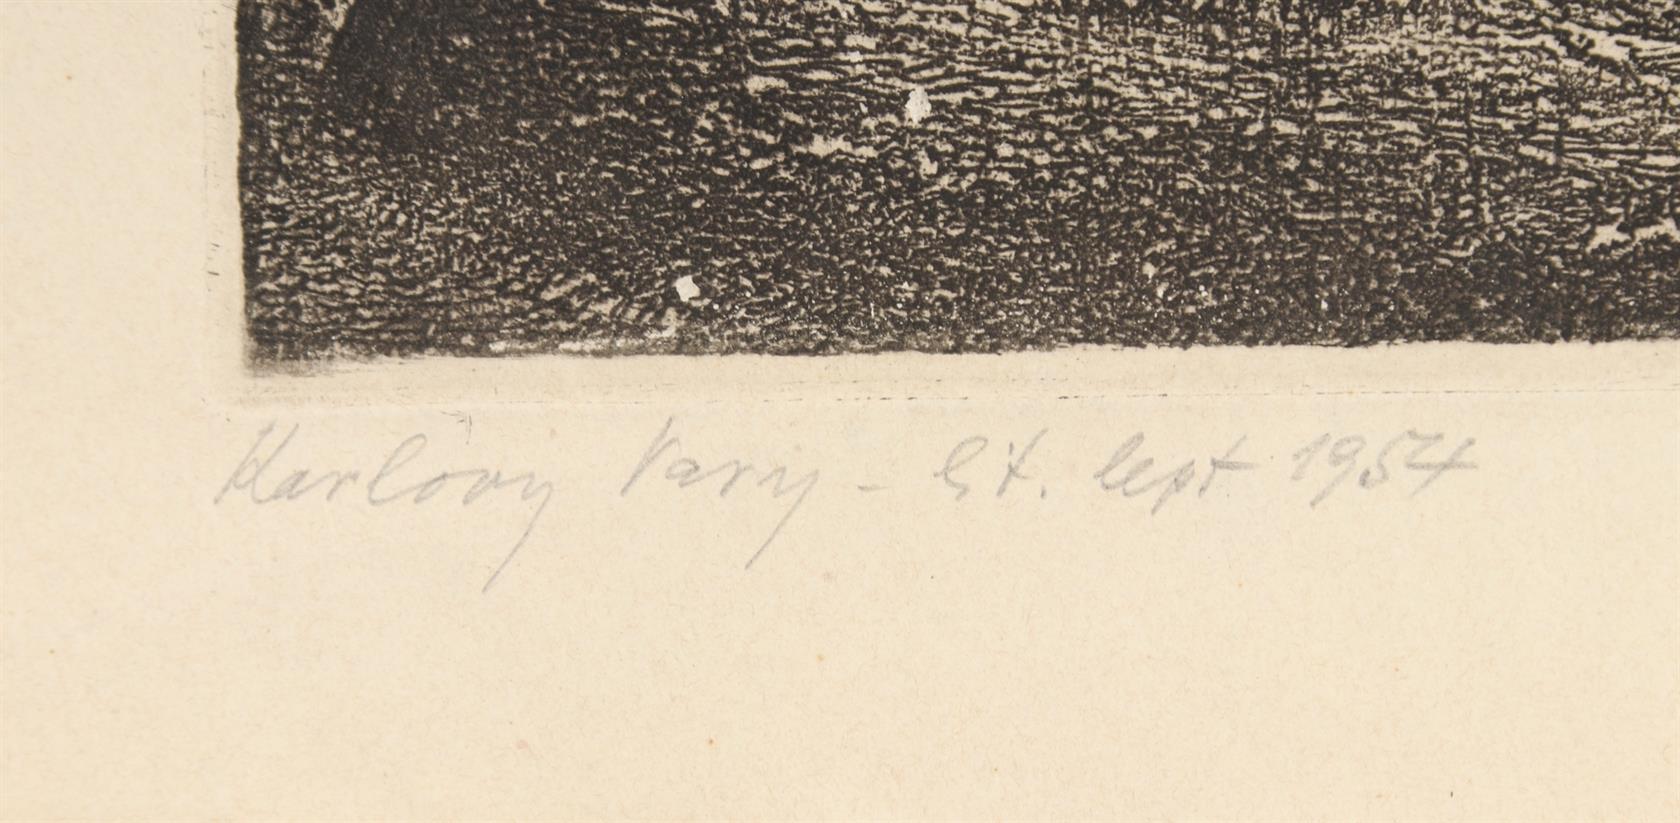 Karlovy Vary - čt. lept 1954